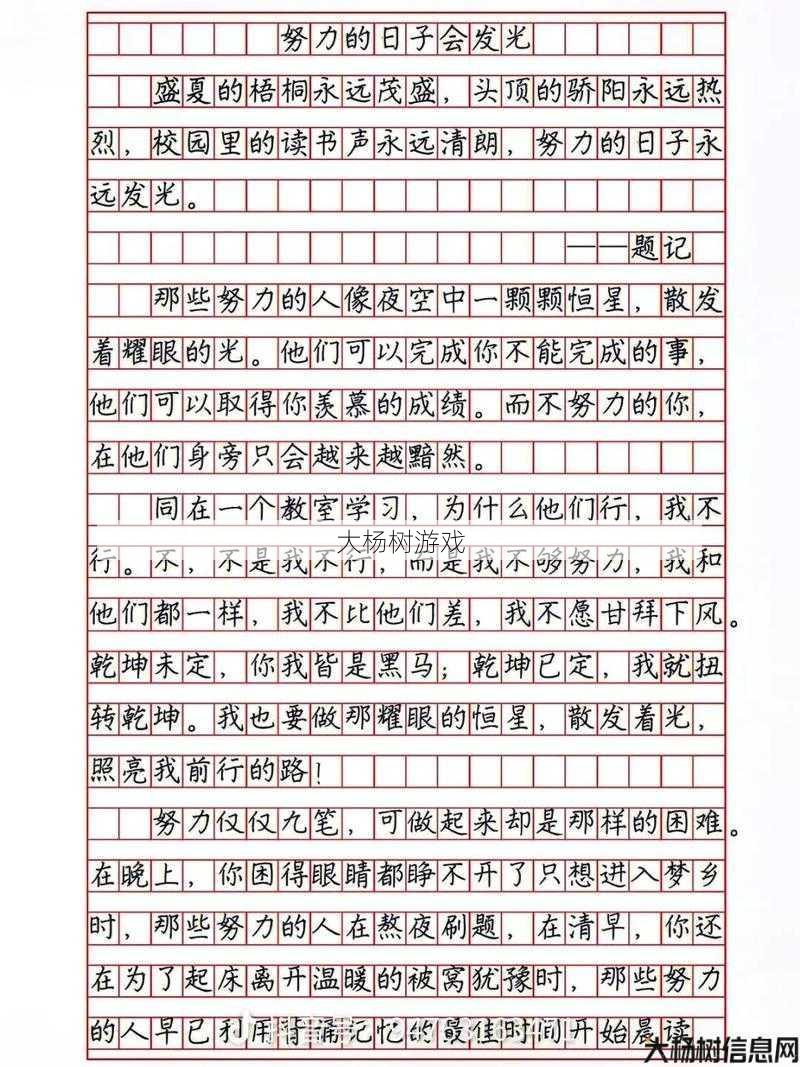 努力的日子会发光
盛夏的梧桐永远茂盛，头顶的骄阳永远热
烈，校园里的读书声永远清朗，努力的日子永
远发光。
——题记
那些努力的人像夜空中一颗颗恒星，散发
着耀眼的光。他们可以完成你不能完成的事，
他们可以取得你羡慕的成绩。而不努力的你，
在他们身旁只会越来越黯然。
同在一个教室学习，为什么他们行，我不
大杨树游戏
行。不，不是我不行，而是我不够努力，我和
他们都一样，我不比他们差，我不愿甘拜下风。
乾坤未定，你我皆是黑马；乾坤已定，我就扭
转乾坤。我也要做那耀眼的恒星，散发着光，
照亮我前行的路！
努力仅仅九笔，可做起来却是那样的困难。
在晚上，你困得眼睛都睁不开了只想进入梦乡
时，那些努力的人在熬夜刷题，在清早，你还
在为了起床离开温暖的被窝犹豫时，那些努力
的人早已利用背诵记忆的最佳时间开始晨读
抖音号：
大杨树信息网